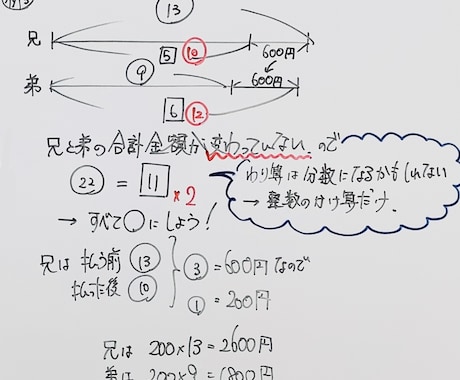 例3
⑬
兄
5 ⑩ 600円
⑨
弟 600円
6 ⑫
兄と弟の合計金額が変わっていないので
㉒ = 11 ×2
わり算は分数になるかもしれない
→ 整数のかけ算だけ.
→ すべて○にしよう!
兄は 払う前 ⑬
払った後 ⑩
③ = 600円なので
① = 200円
兄は 200×13=2600円
弟は 200×9=1800円